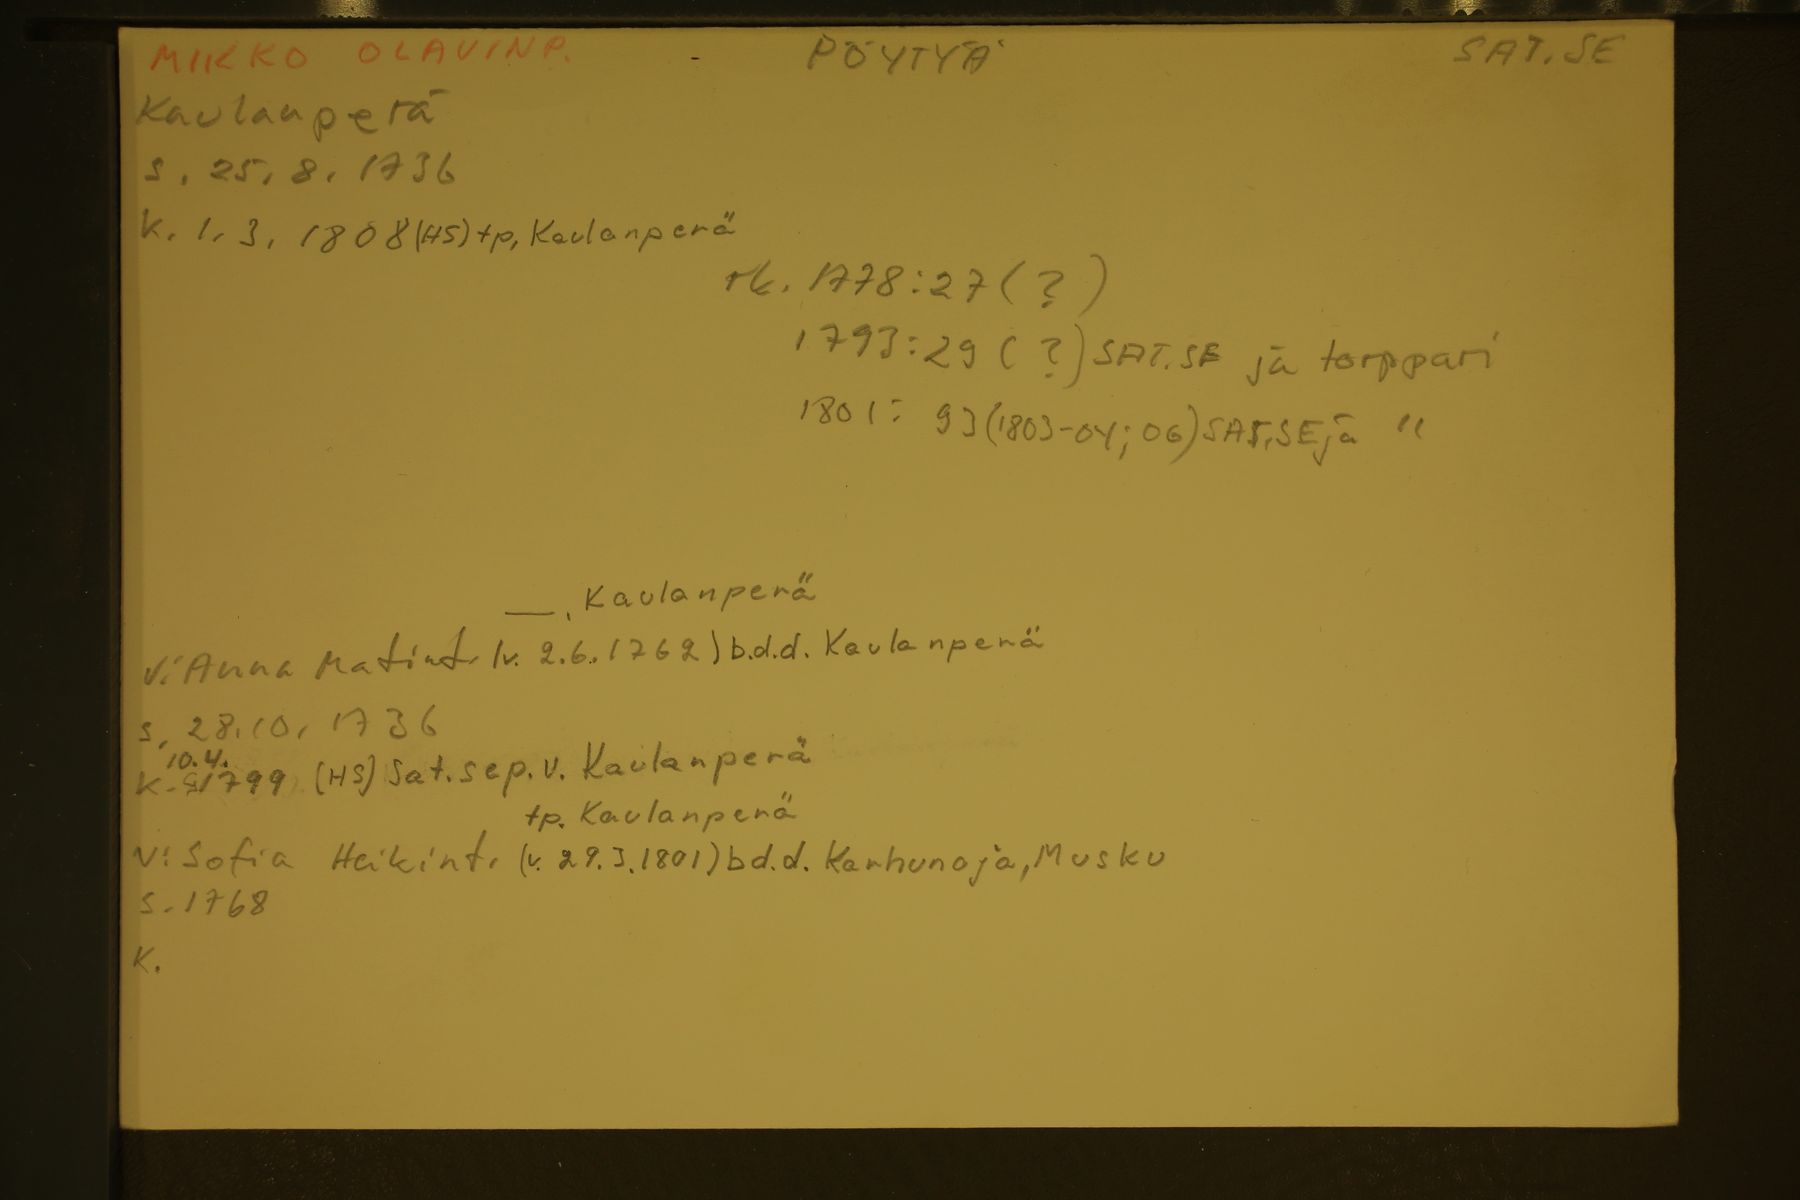 MIKKO OLAVINP. - PÖYTYÄ SAT. SE
Kaulanperä
s. 25. 8. 1736
k. 1. 3. 1808 (HS) tp. Kaulanperä
rk. 1778: 27 (?)
1793: 29 (?) SAT. SE jä torppari
1801: 93 (1803-04; 06) SAT. SE jä "
—. Kaulanperä
V: Anna Matint. (v. 2.6.1762) b.d.d. Kaulanperä
s. 28. 10. 1736
10.4.
k. 1799 (HS) Sat.sep.v. Kaulanperä
tp. Kaulanperä
V: Sofia Heikint. (v. 29.3.1801) b.d.d. Karhunoja, Musku
s. 1768
K.